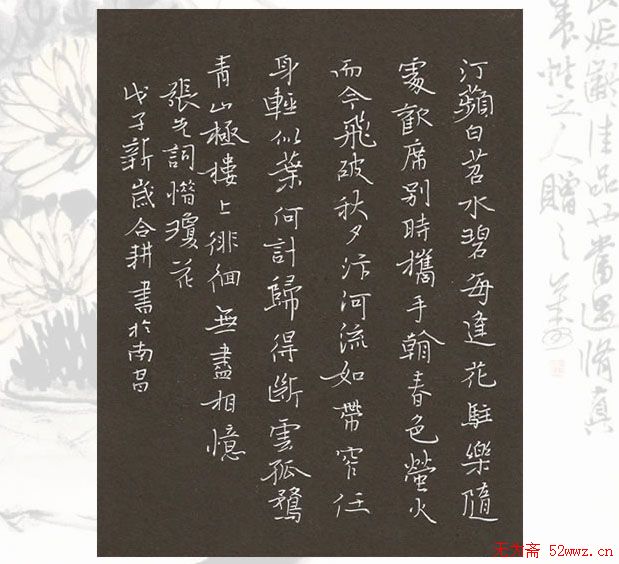 汀蘋白苕水碧每逢花駐樂隨
處歡席別時攜手翰春色螢火
而今飛破秋夕汴河流如帶窄任
身輕似葉何計歸得斷雲孤鶩
青山極樓上徘徊無盡相憶
張先詞惜瓊花
戊子新歲合耕書於南昌
佳品也當遇脩真
養性之人贈之
无为斋 52wwz.cn